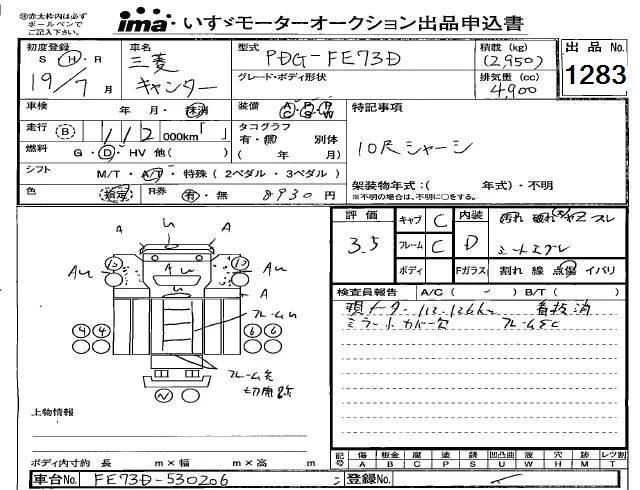 ㊟赤太枠内は必ず
ボールペンで
ご記入下さい。
ima いすゞモーターオークション出品申込書
初度登録
S Ⓗ R
19/7月
車名
三菱
キャンター
型式
PDG-FE73D
グレード・ボディ形状
積載(kg)
(2,950)
排気量(cc)
4900
出品No.
1283
車検 年・月・抹消
装備 A/C P/S P/W
特記事項
走行 Ⓑ 112 000km「 」
タコグラフ
有・無 別体
( 年 月)
10尺シャーシ
燃料 G・Ⓓ・HV 他( )
シフト M/T・A/T・特殊(2ペダル・3ペダル)
架装物年式:( 年式)・不明
※不明の場合は、不明に○をする。
色 R券 有・無 8930円
評価 3.5
キャブ C
フレーム C
ボディ
内装 D
Fガラス
汚れ 破れ スレ
割れ 線 点傷 イバリ
検査員報告 A/C( ) B/T( )
現メーター 112,126km
ミラー小カバー欠
A
A
A
4 4
6 6
上物情報
ボディ内寸約 長 m×幅 m×高 m
記号 傷A 板金B 腐C 塗P 錆S 凹凸曲U 波W 穴H 跡M レツ割T
車台No. FE73D-530206
登録No.